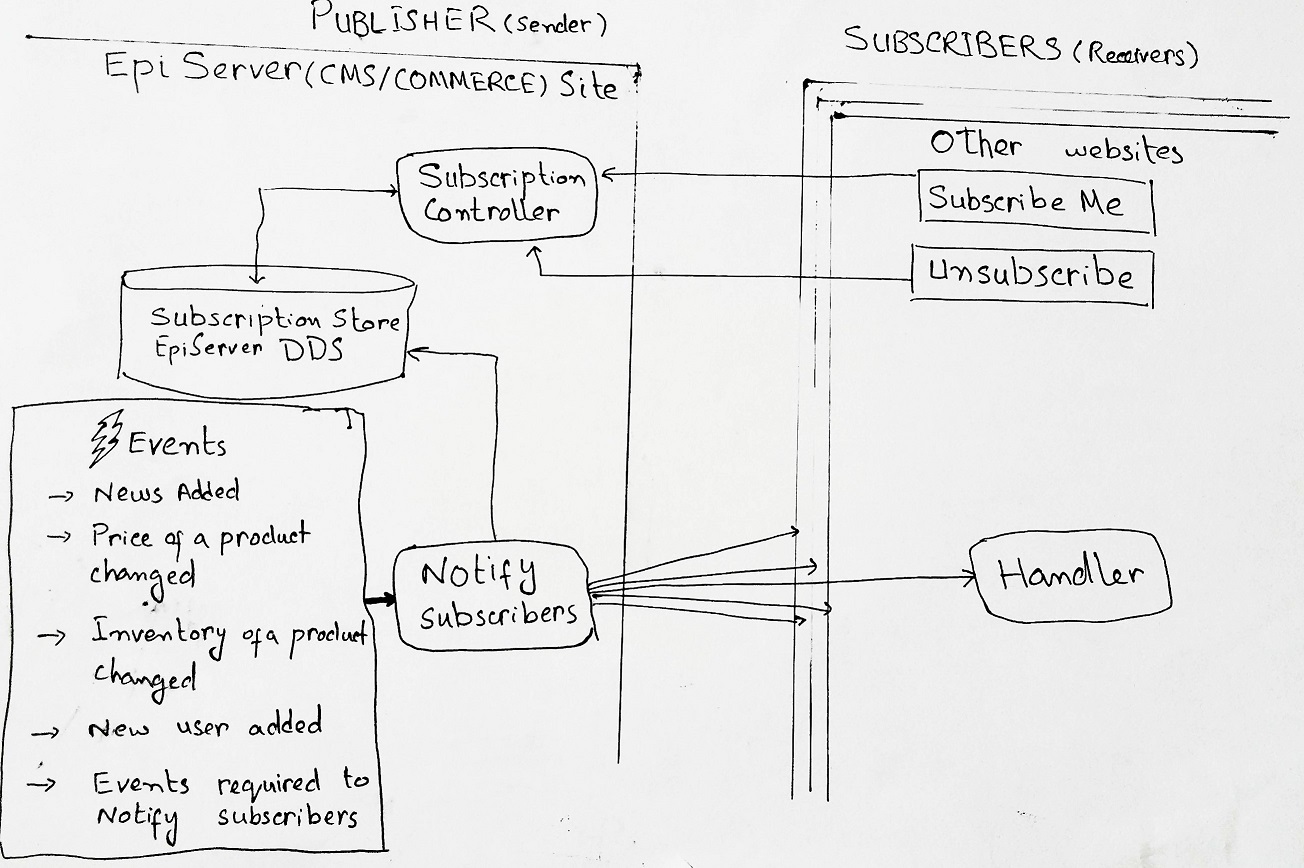 PUBLISHER (sender)
Epi Server (CMS/COMMERCE) Site
Subscription
Controller
Subscription Store
EpiServer DDS
Events
→ News Added
→ Price of a product
changed
→ Inventory of a product
changed
→ New user added
→ Events required to
Notify subscribers
Notify
subscribers
SUBSCRIBERS (Receivers)
Other websites
Subscribe Me
Unsubscribe
Handler